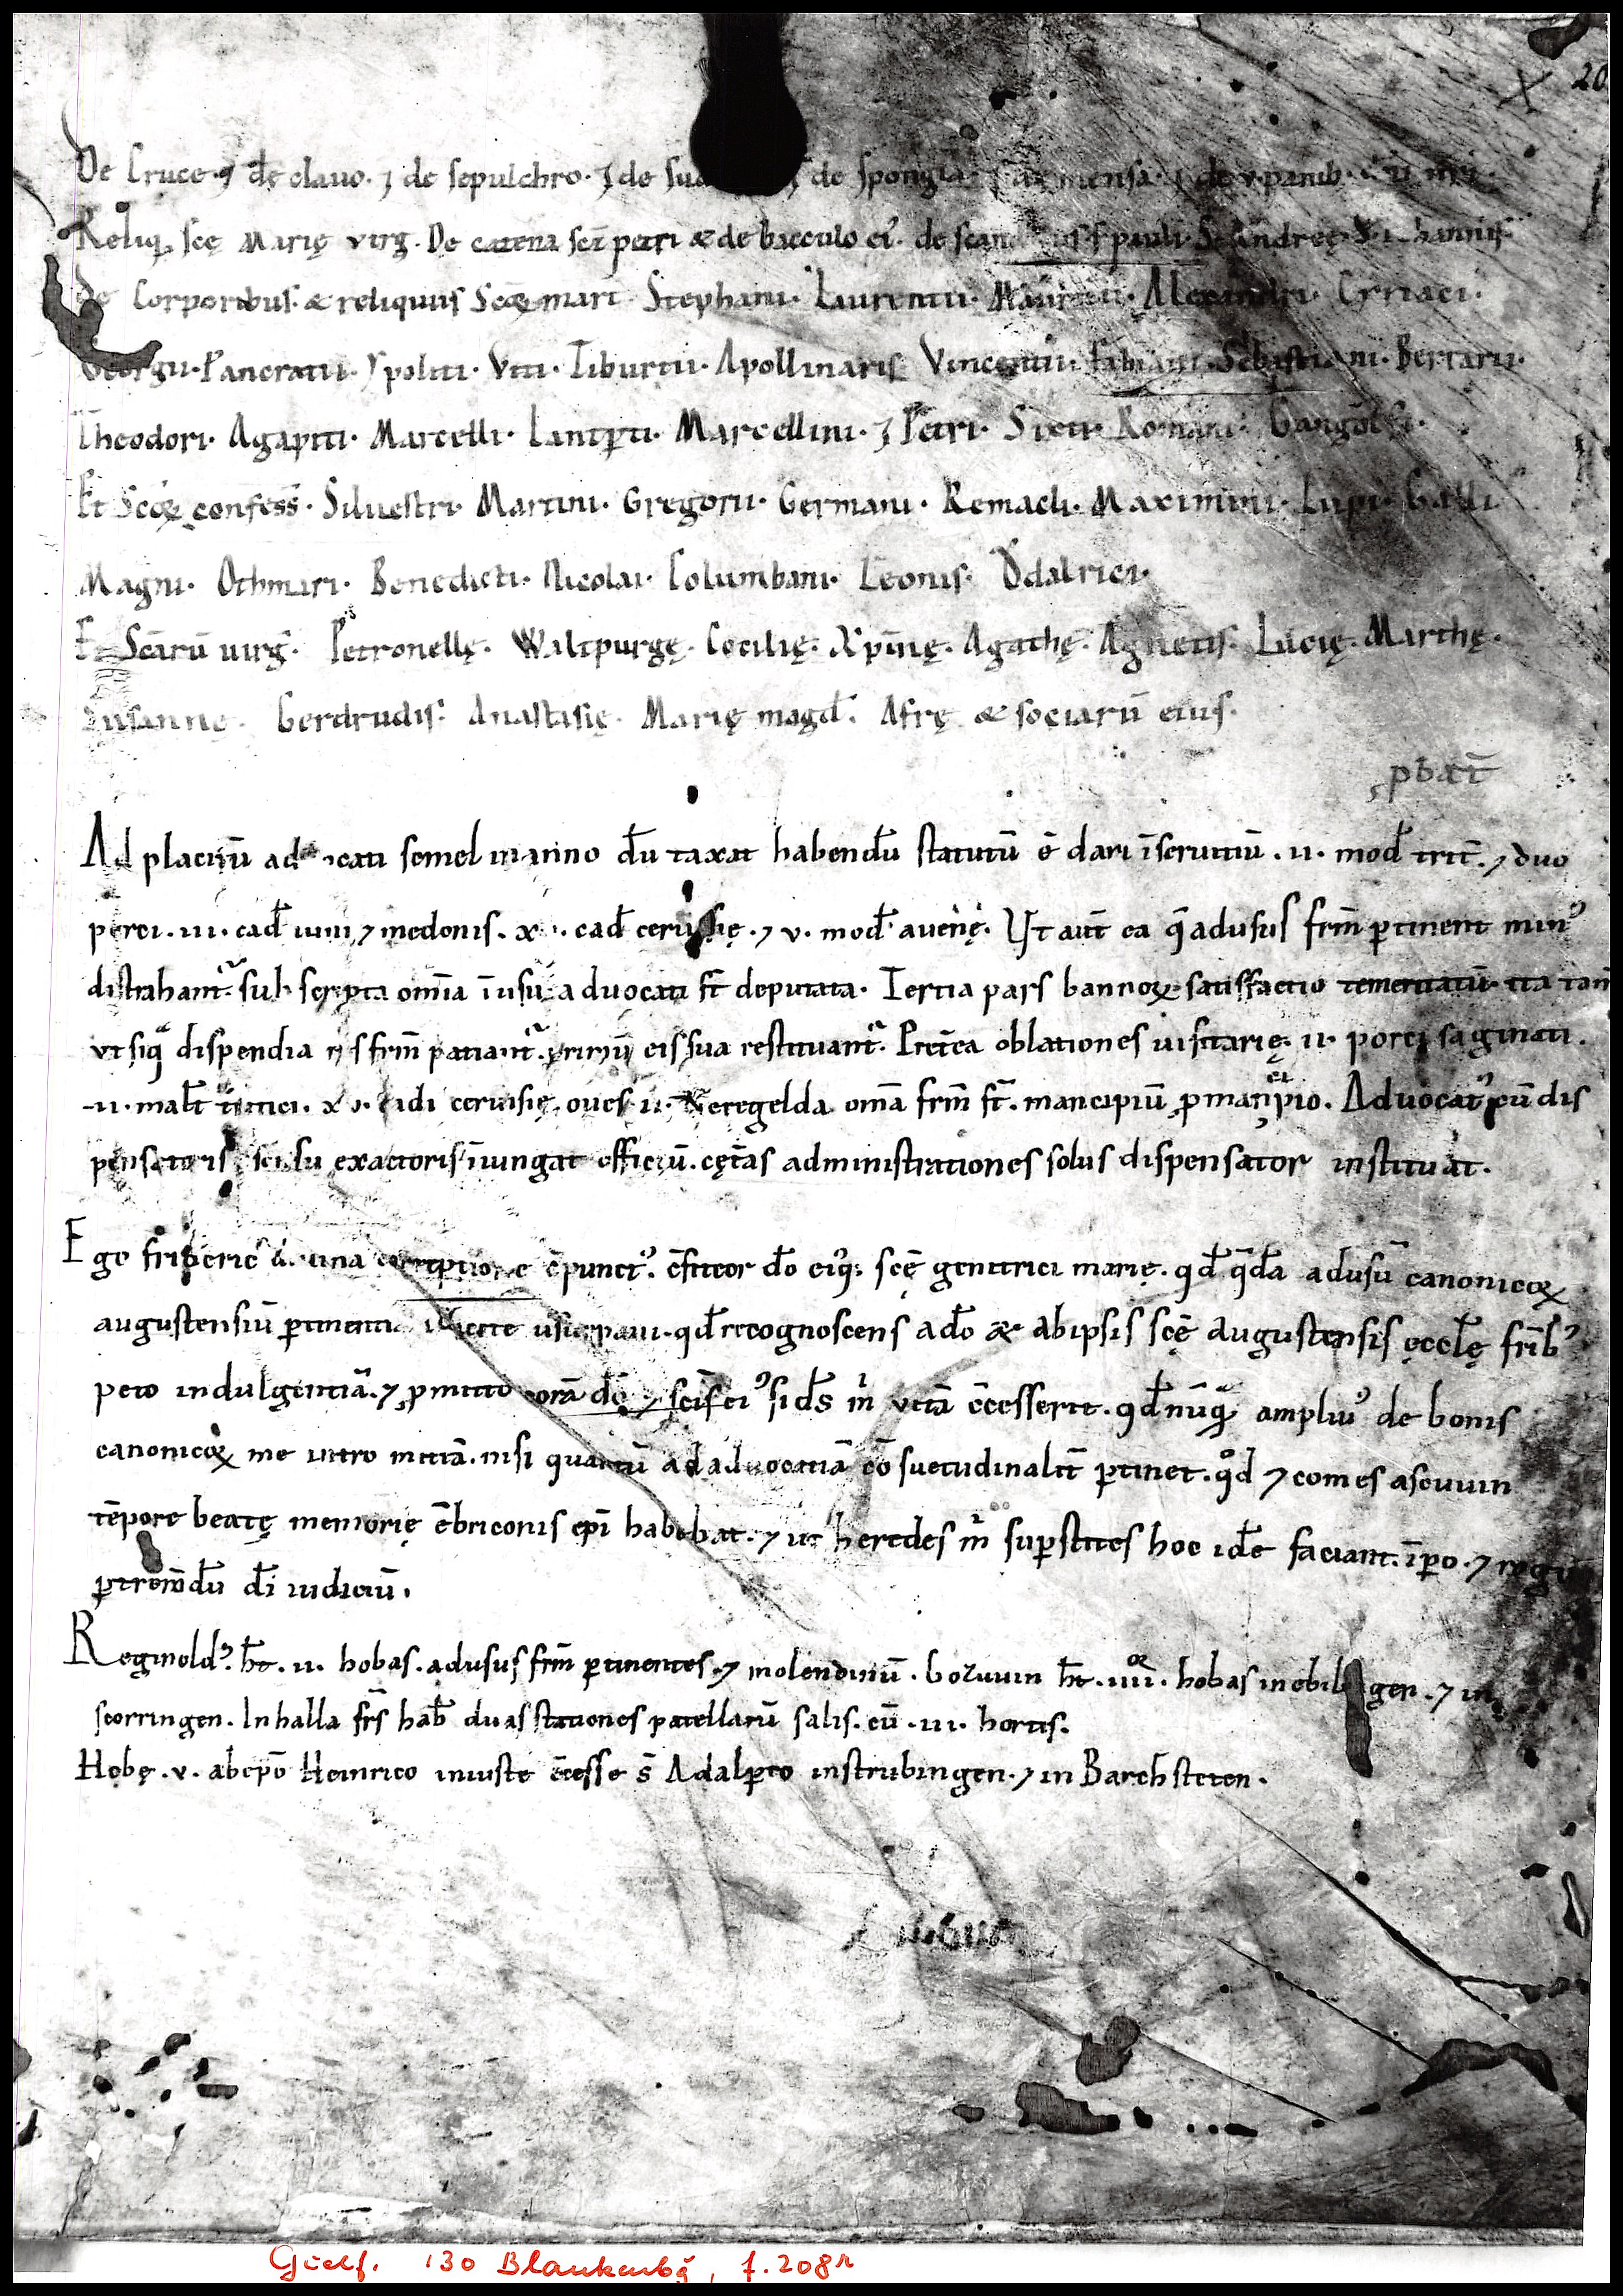 20
De Cruce ⁊ de clauo · ⁊ de sepulchro · ⁊ de ⁊ de spongia · mensa · de v · panib ·
Reliq; scę Marię virg · De catena sci petri & de bacculo ei⁹ · de pauli · S · Andreę · S · iohannis ·
de Corporibus · & reliquiis Scoꝝ mart · Stephani · Laurentii · Mauritii · Alexandri · Cyriaci ·
Georgii · Pancratii · Ypoliti · Viti · Tiburtii · Apollinaris · Vincentii · Fabiani · Sebastiani · Berrarii ·
Theodori · Agapiti · Marcelli · Lantꝑti · Marcellini · ⁊ Petri · Sixti · Romani · Gangolfi ·
Et Scoꝝ confess̄ · Siluestri · Martini · Gregorii · Germani · Remacli · Maximini · Lupi · Galli
Magni · Othmari · Benedicti · Nicolai · Columbani · Leonis · Ŏdalrici ·
Et Scārū uirḡ · Petronellę · Waltpurgę · Cecilię · Xpīnę · Agathę · Agnetis · Lucię · Marthę ·
Susannę · Gerdrudis · Anastasię · Marię magd̄ · Afrę & sociarū eius ·
ꝓbat̄
Ad placitū aduocati semel in anno dū taxat habendū statutū ē dari ī seruitiū · ii · mod̄ trit̄ · ⁊ duo
porci · iii · cad̄ uini ⁊ medonis · cad̄ ceruisię · ⁊ v · mod̄ auenę · Vt aut̄ ea q̄ ad usus fr̄m ꝑtinent min⁹
distrahant̄ · sub scripta om̄ia ī usū aduocati st̄ deputata · Tertia pars bannoꝝ · satisfactio temeritatū · ita tam̄
vt siq̄ dispendia fr̄m patiant̄ · primū eis sua restituant̄ · Pret̄ea oblationes uisitarię · ii · porci saginati ·
ii · malt̄ tritici · cadi ceruisię · oues ii · Weregelda om̄a fr̄m st̄ · mancipiū ꝓ mancipio · Aduocat⁹ cū dis
pensatoris sensu exactoris īiungat officiū · cęt̄as administrationes solus dispensator instituat ·
Ego frideric⁹ diuina correptione cōpunct⁹ · cōfiteor dō ei⁹q; scę̄ genitrici marię · qd̄ q̄dā ad usū canonicoꝝ
augustensiū ꝑtinentia iniuste usurpaui · qd̄ recognoscens a dō & ab ipsis scę̄ augustensis ęccl̄ę frīb⁹
peto indulgentiā · ⁊ ꝓmitto corā dō ⁊ scīs ei⁹ si d̄s m̄ uitā c̄cesserit · qd̄ nūq̄ ampli⁹ de bonis
canonicoꝝ me intromittā · nisi quantū ad aduocatiā cōsuetudinalit̄ ꝑtinet · qd̄ ⁊ comes ascuuin
tēpore beatę memorię ēbriconis epī habebat · ⁊ ut heredes m̄ suꝑstites hoc idē faciant · īpo · ⁊ rogo
ꝑ trem̄dū dī iudiciū ·
Reginold⁹ · h̄t · ii · hobas · ad usus fr̄m ꝑtinentes · ⁊ molendinū · bozuuin h̄t · iiii · hobas in ebilgen · ⁊ in
scorringen · In halla fr̄s hab̄ duas stationes patellarū salis · cū · iii · hortis ·
Hobę · v · ab epō Heinrico iniuste c̄cesse s̄ Adalꝑto in strubingen · ⁊ in Barchsteten ·
Guelf. 130 Blankenbg, f. 208r